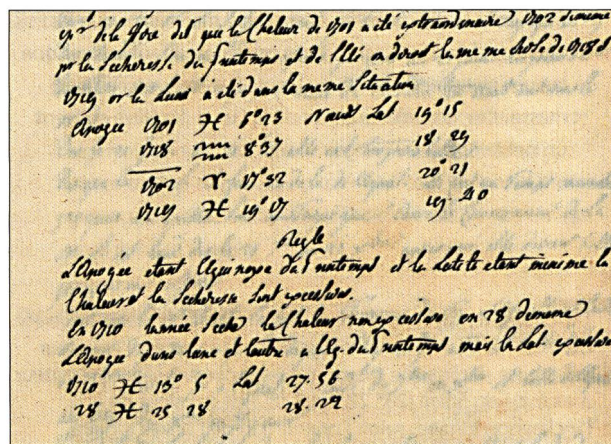 de la dit que la Chaleur de 1701 a été extraordinaire 1702 de meme
pr la Secheresse du Printemps et de l'Eté on diroit la meme chose de 1718 &
1719 or la Lune a été dans la meme Situation
Apogée 1701 ♓ 5° 23 Nœud Lat 19° 15
1718 ♒ 8° 37 18 29
1702 ♈ 17° 32 20° 21
1719 ♓ 19° 17 19. 40
Regle
L'Apogée etant Equinoxe du Printemps et la Latde etant minime la
Chaleur et la Secheresse Sont excessives.
En 1710 l'année Seche la Chaleur non excessive en 28 de meme
L'Apogée dans l'une et l'autre a Eq. du Printemps mais la Lat. excessive
1710 ♓ 13° 5 Lat 27. 56
28 ♓ 25 28 28. 29